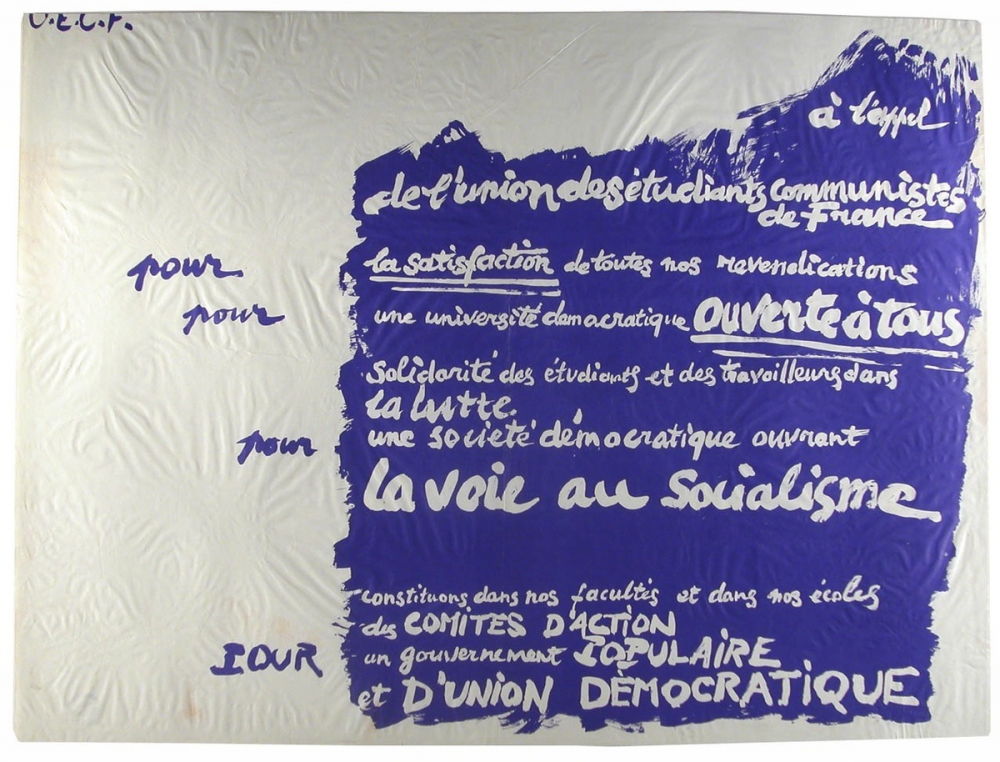 U.E.C.F.
à l'appel
de l'union des étudiants communistes
de France
pour la satisfaction de toutes nos revendications
pour une université démocratique ouverte à tous
Solidarité des étudiants et des travailleurs dans
la lutte.
pour une société démocratique ouvrant
la voie au Socialisme
constituons dans nos facultés et dans nos écoles
des COMITES D'ACTION
POUR un gouvernement POPULAIRE
et D'UNION DÉMOCRATIQUE